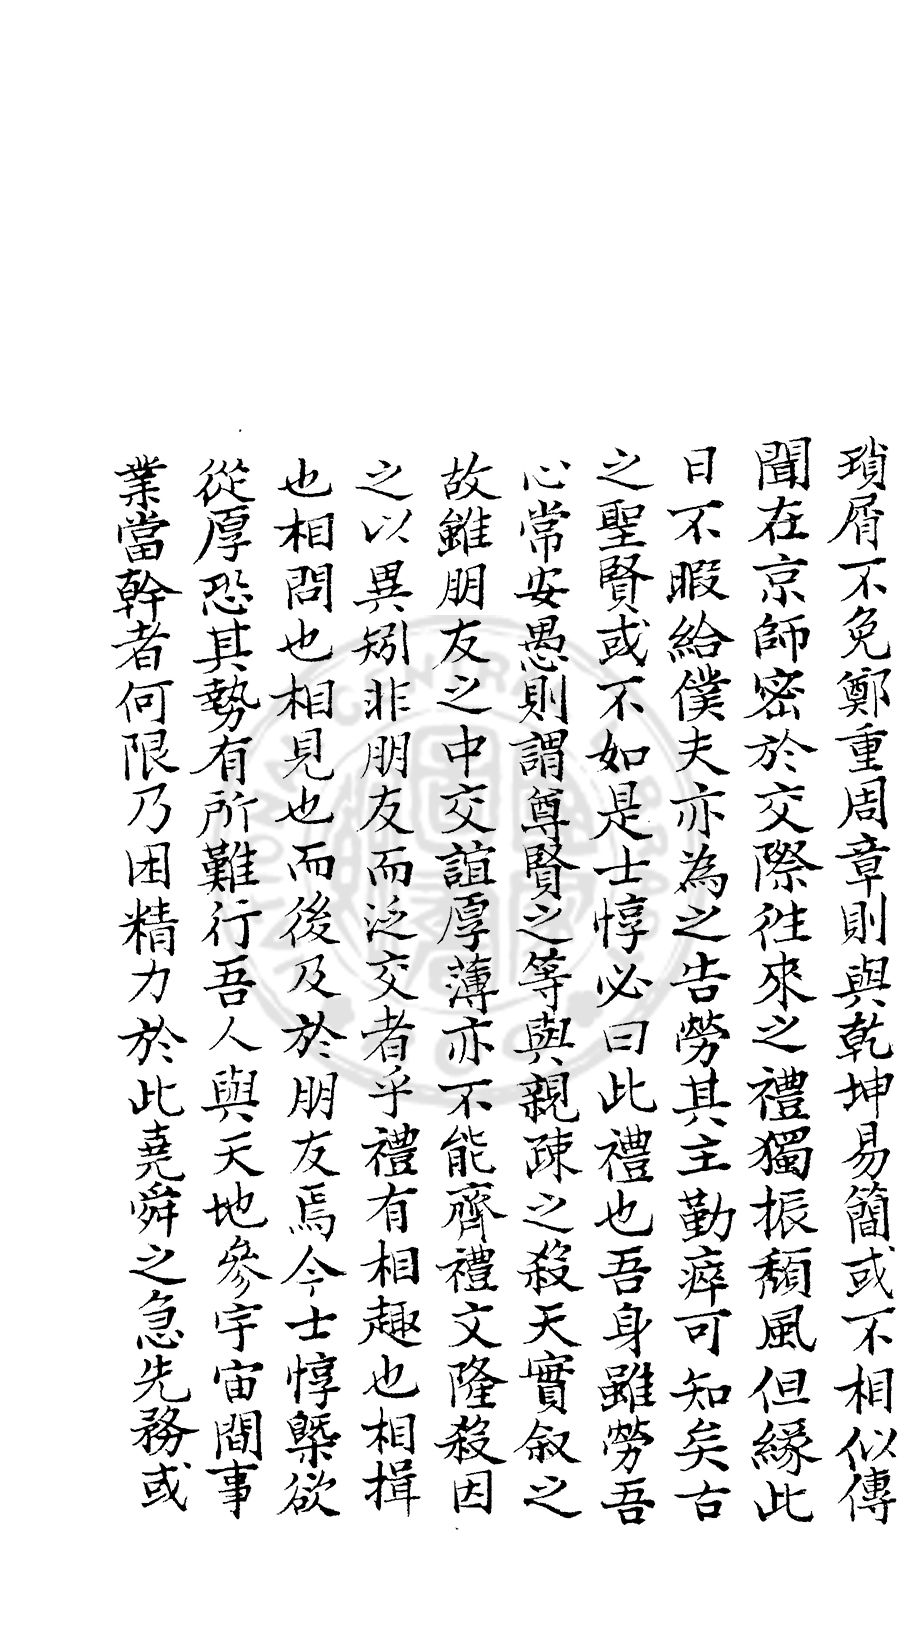 瑣屑不免鄭重周章則與乾坤易簡或不相似傳
聞在京師密於交際徃來之禮獨振頹風但緣此
日不暇給僕夫亦為之告勞其主勤瘁可知矣古
之聖賢或不如是士惇必曰此禮也吾身雖勞吾
心常安愚則謂尊賢之等與親疎之殺天實叙之
故雖朋友之中交誼厚薄亦不能齊禮文隆殺因
之以異矧非朋友而泛交者乎禮有相趣也相揖
也相問也相見也而後及於朋友焉今士惇槩欲
從厚恐其勢有所難行吾人與天地參宇宙間事
業當幹者何限乃困精力於此堯舜之急先務或